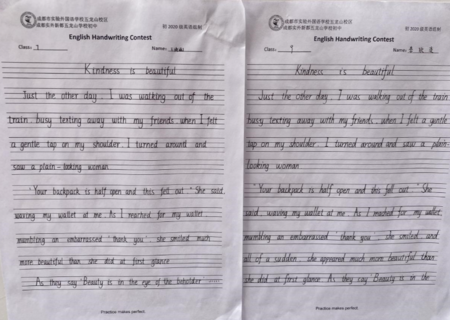 成都市实验外国语学校五龙山校区
成都实外新都五龙山学校初中
初2020级英语组制
English Handwriting Contest
Class: 7
Name:
Kindness is beautiful
Just the other day, I was walking out of the
train busy texting away with my friends when I felt
a gentle tap on my shoulder I turned around and
saw a plain-looking woman
"Your backpack is half open and this fell out" She said
waving my wallet at me. As I reached for my wallet
mumbling an embarrassed "thank you" she smiled much
more beautiful than she did at first glance
As they say "Beauty is in the eye of the beholder
Practice makes perfect.
成都市实验外国语学校五龙山校区
成都实外新都五龙山学校初中
初2020级英语组制
English Handwriting Contest
Class: 7
Name:
Kindness is beautiful
Just the other day, I was walking out of the train
busy texting away with my friends, when I felt a gentle
tap on my shoulder. I turned around and saw a plain-
looking woman
"Your backpack is half open and this fell out" She
said, waving my wallet at me. As I reached for my wallet,
mumbling an embarrassed "thank you", she smiled and
all of a sudden she appeared much more beautiful than
she did at first glance. As they say "Beauty is in the
Practice makes perfect.